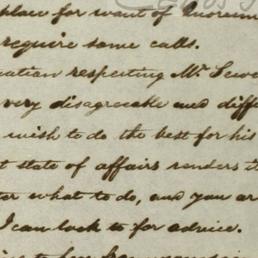 place for want of Quorum
require some calls.
uation respecting Mr. Sew
very disagreeable and diff
wish to do the best for his
t state of affairs renders t
ter what to do, and you ar
I can look to for advice.